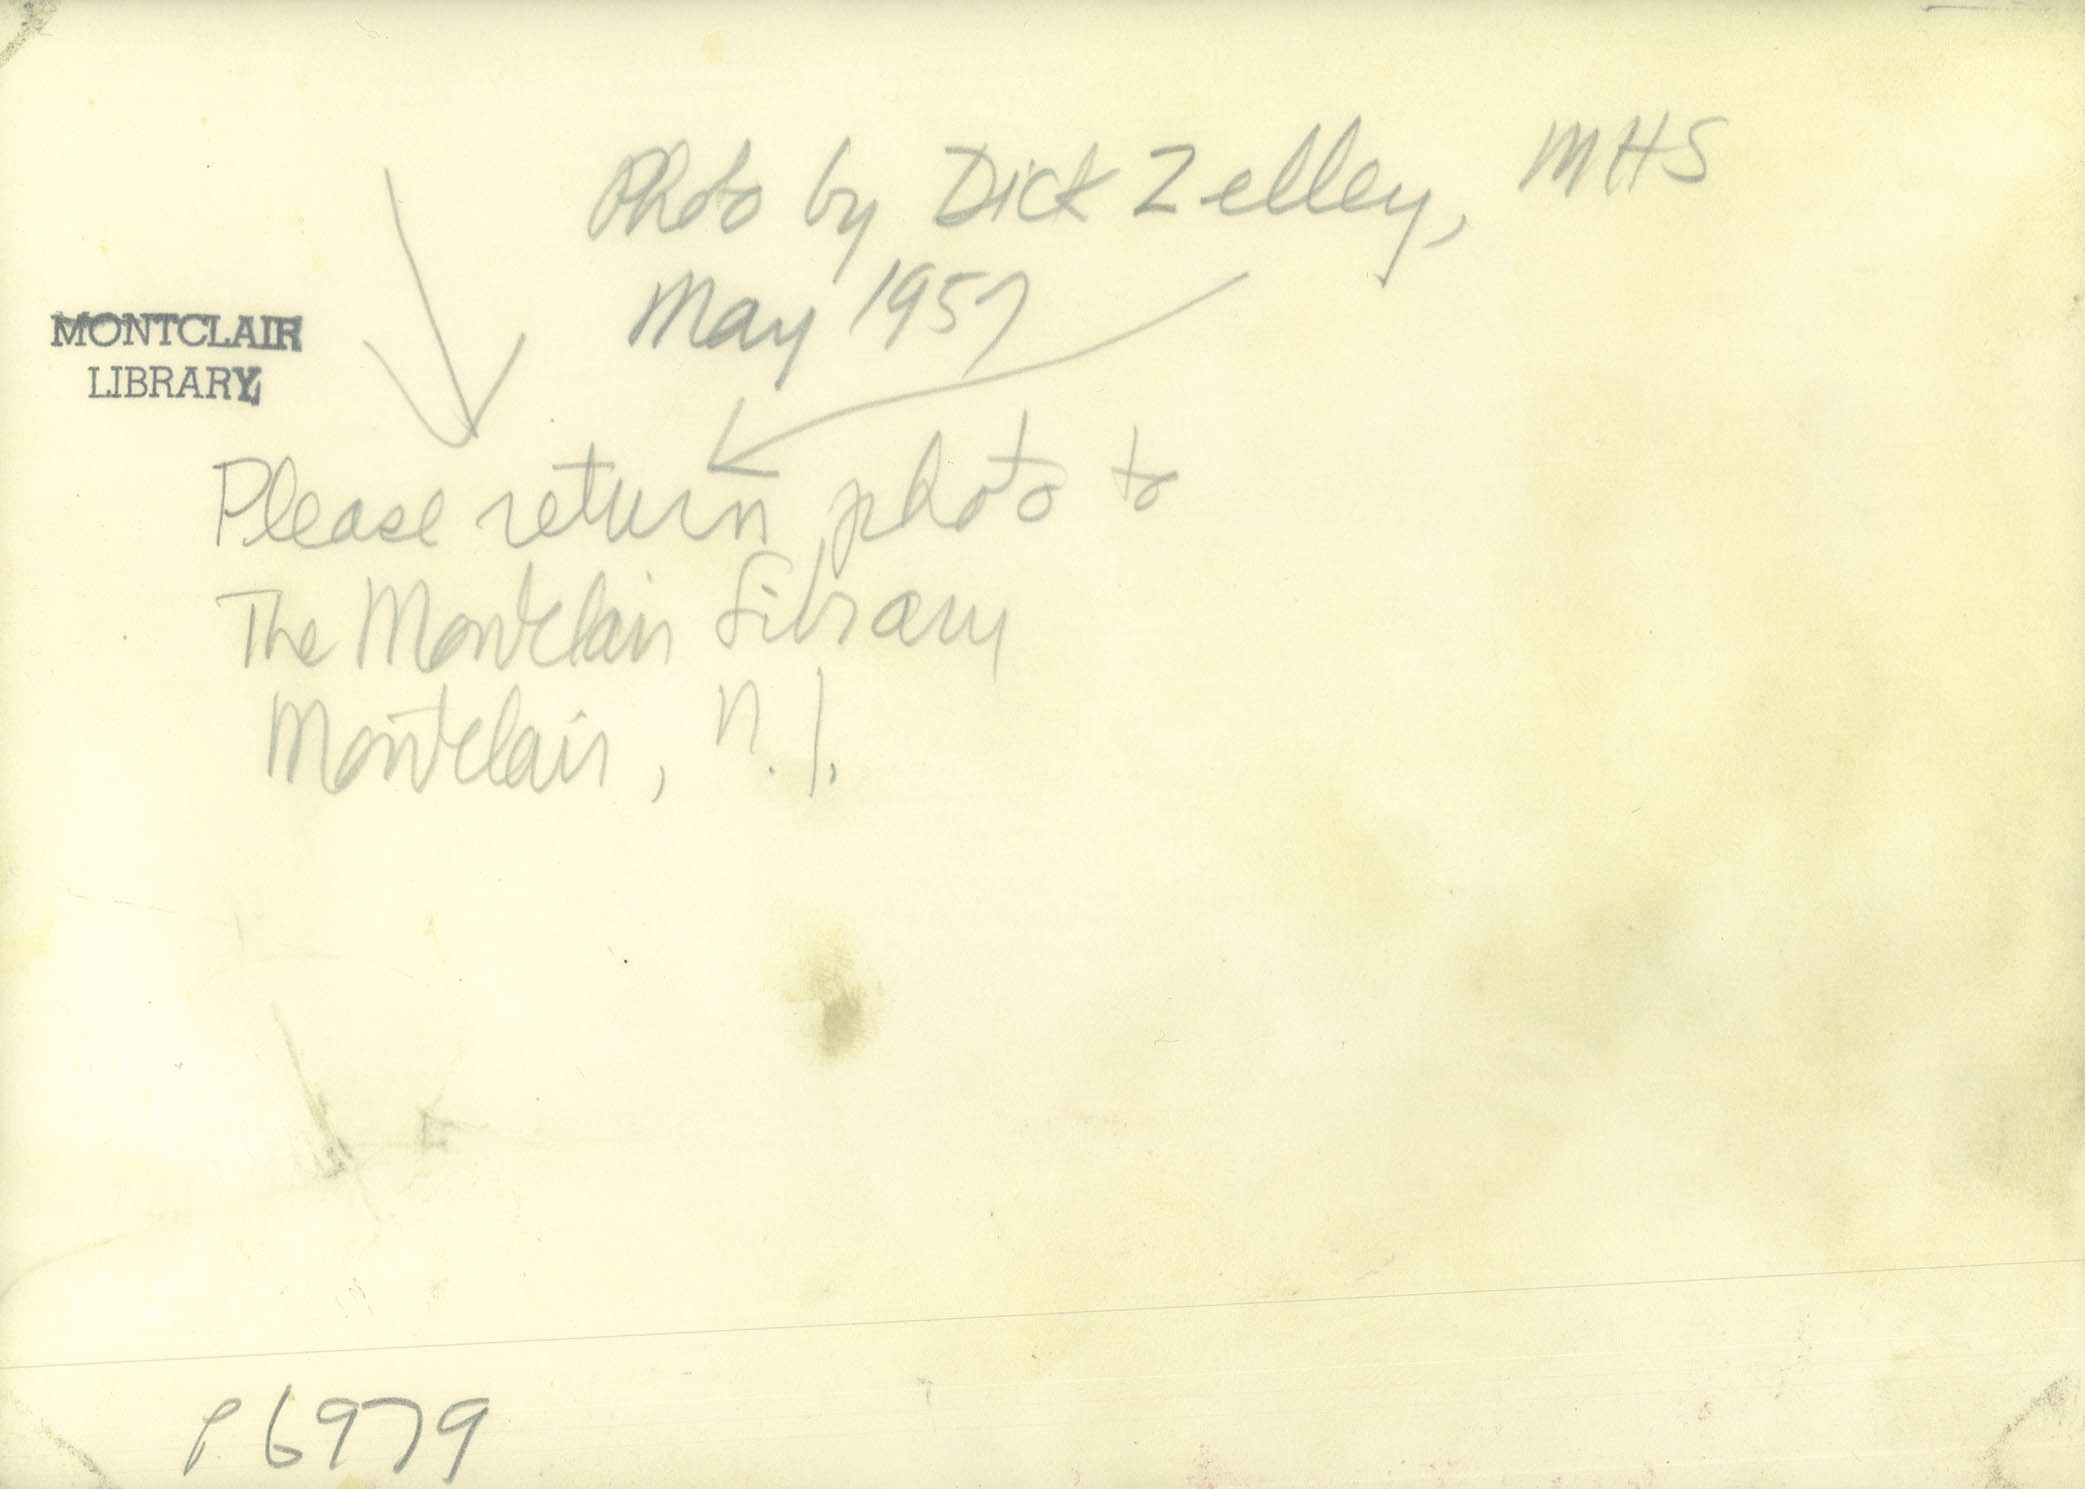 Photo by Dick Zelley, MHS
May 1957
MONTCLAIR
LIBRARY
Please return photo to
The Montclair Library
Montclair, N.J.
P6979